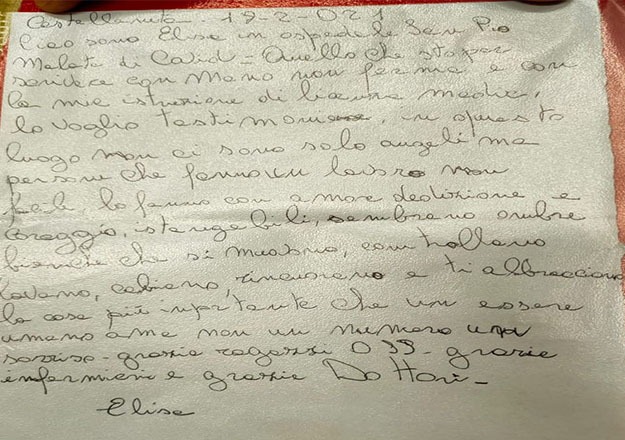 Castellaneta - 19-2-021
Ciao sono Elisa in ospedale San Pio
Malata di Covid - Quello che sto per
scrivere con Mano non ferma e con
la mia istruzione di licenza media,
lo voglio testimoniare, in questo
luogo non ci sono solo angeli ma
persone che fanno un lavoro non
facile lo fanno con amore dedizione e
coraggio, istangebili, sembrano ombre
bianche che si muovono, controllano
lavano, cabiano, rincuorano e ti abbracciano
la cosa più inportante che un essere
umano ame non un numero una
sorriso - grazie ragazzi OSS - grazie
infermieri e grazie Dottori -
Elisa